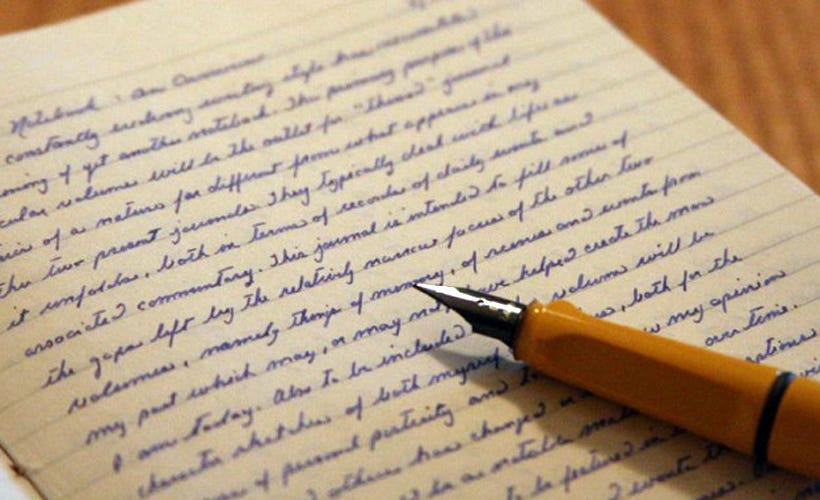 Notebook : An Overview
constantly evolving writing style has necessitated
of yet another notebook. The primary purpose of the
volumes will be the outlet for "themed" journal
of a nature far different from what appears in my
other two present journals. They typically deal with life as
it unfolds, both in terms of records of daily events and
associated commentary. This journal is intended to fill some of
the gaps left by the relatively narrow focus of the other two
volumes, namely things of memory, of scenes and events from
my past which may, or may not, have helped create the man
I am today. Also to be included volume will be
character sketches of both myself , both for the
of personal posterity and my opinion
others have changed over time.
be a notable
to be featured in